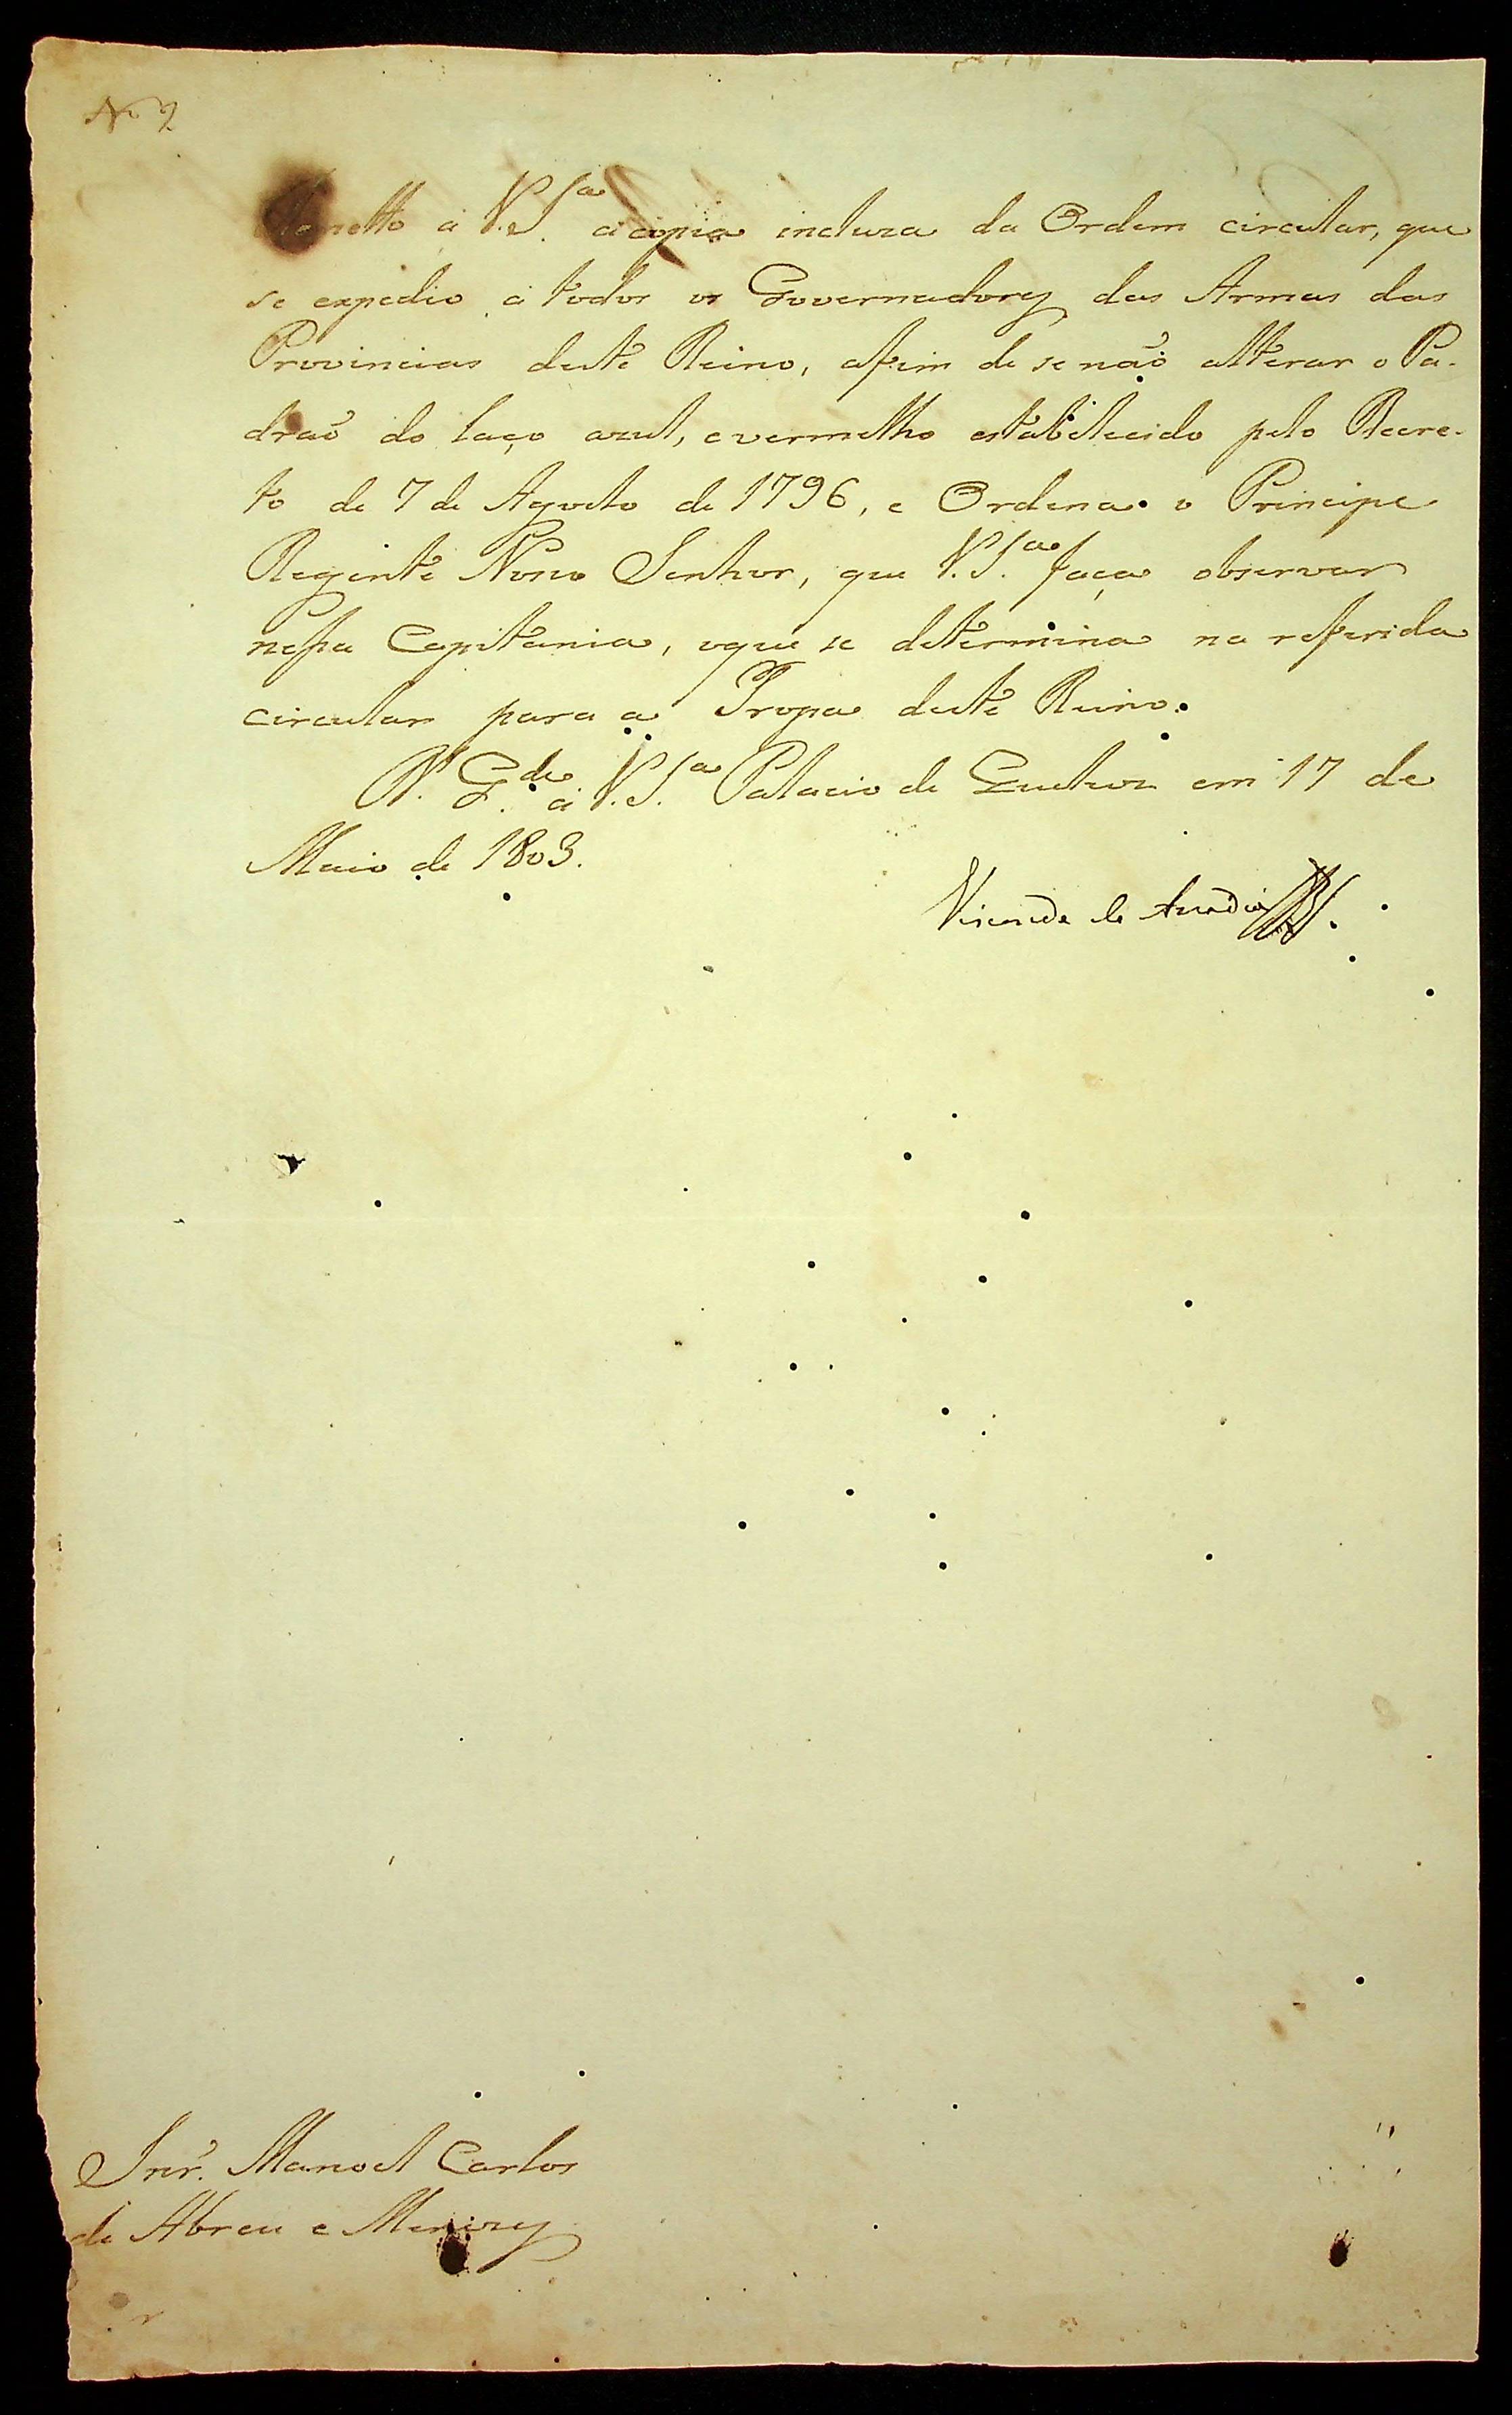 N 2
Remetto á V. S.ª a cópia incluza da Ordem circular, que
se expedio á todos os Governadores das Armas das
Provincias deste Reino, afim de se naõ alterar o Pa-
draõ do laço azul, e vermelho estabelecido pelo Decre-
to de 7 de Agosto de 1796, e Ordena o Principe
Regente Nosso Senhor, que V. S.ª faça observar
nessa Capitania, oque se determina na referida
circular para a Tropa deste Reino.
D.s G.de á V. S.ª Palacio de Queluz em 17 de
Maio de 1803.
Visconde de Anadia
Snr. Manoel Carlos
de Abreu e Menezes